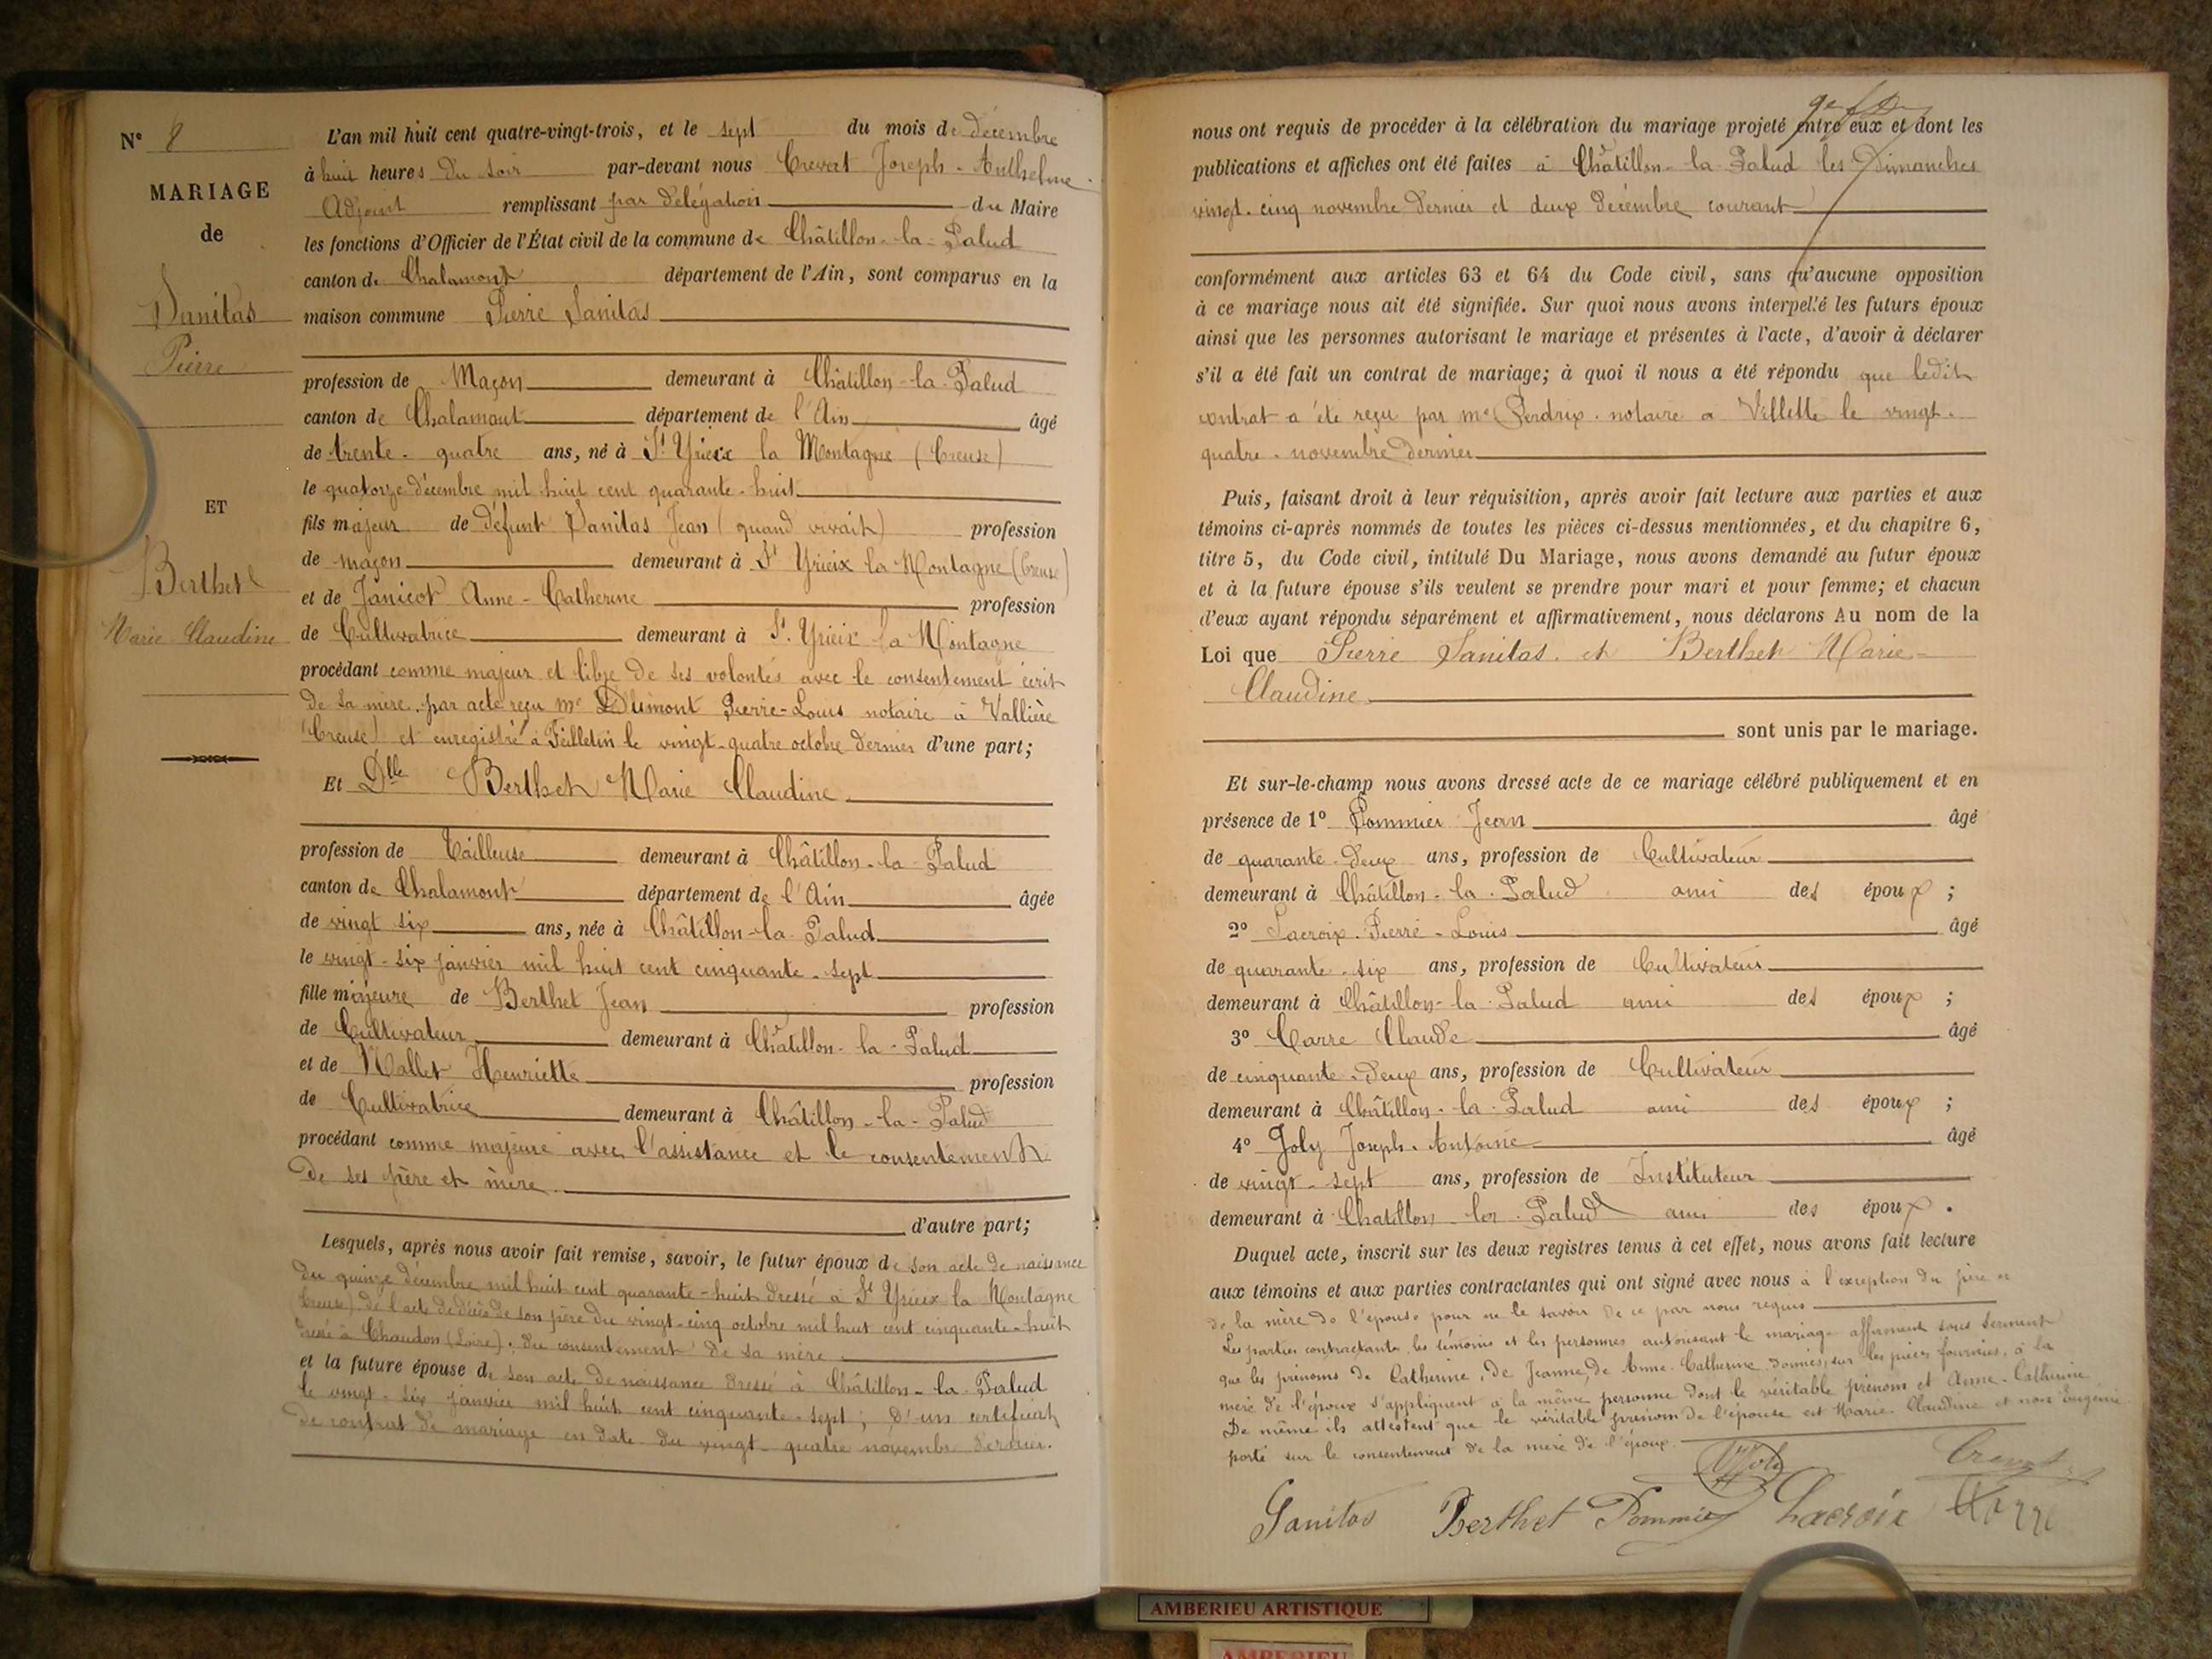 N° 8
MARIAGE
de
Sanitas
Pierre
ET
Berthet
Marie Claudine
L'an mil huit cent quatre-vingt-trois, et le sept du mois de décembre
à huit heures du soir par-devant nous Crevat Joseph-Anthelme
Adjoint remplissant par délégation du Maire
les fonctions d'Officier de l'État civil de la commune de Châtillon-la-Palud
canton de Chalamont département de l'Ain, sont comparus en la
maison commune Pierre Sanitas
profession de Maçon demeurant à Châtillon-la-Palud
canton de Chalamont département de l'Ain âgé
de trente-quatre ans, né à St Yrieix la Montagne (Creuse)
le quatorze décembre mil huit cent quarante-huit
fils majeur de défunt Sanitas Jean (quand vivait) profession
de maçon demeurant à St Yrieix la Montagne (Creuse)
et de Janicot Anne-Catherine profession
de Cultivatrice demeurant à St. Yrieix la Montagne
procédant comme majeur et libre de ses volontés avec le consentement écrit
de sa mère, par acte reçu me Dumont Pierre-Louis notaire à Vallière
(Creuse) et enregistré à Felletin le vingt-quatre octobre dernier d'une part;
Et Dlle Berthet Marie Claudine
profession de Tailleuse demeurant à Châtillon-la-Palud
canton de Chalamont département de l'Ain âgée
de vingt six ans, née à Châtillon-la-Palud
le vingt-six janvier mil huit cent cinquante-sept
fille majeure de Berthet Jean profession
de Cultivateur demeurant à Châtillon-la-Palud
et de Mallet Henriette profession
de Cultivatrice demeurant à Châtillon-la-Palud
procédant comme majeure avec l'assistance et le consentement
de ses père et mère
d'autre part;
Lesquels, après nous avoir fait remise, savoir, le futur époux de son acte de naissance
du quinze décembre mil huit cent quarante-huit dressé à St Yrieix la Montagne
(Creuse) de l'acte de décès de son père du vingt-cinq octobre mil huit cent cinquante-huit
dressé à Chaudon (Loire), du consentement de sa mère
et la future épouse de son acte de naissance dressé à Châtillon-la-Palud
le vingt-six janvier mil huit cent cinquante-sept; d'un certificat
de contrat de mariage en date du vingt-quatre novembre dernier.
nous ont requis de procéder à la célébration du mariage projeté entre eux et dont les
publications et affiches ont été faites à Châtillon-la-Palud les Dimanches
vingt-cinq novembre dernier et deux décembre courant
conformément aux articles 63 et 64 du Code civil, sans qu'aucune opposition
à ce mariage nous ait été signifiée. Sur quoi nous avons interpellé les futurs époux
ainsi que les personnes autorisant le mariage et présentes à l'acte, d'avoir à déclarer
s'il a été fait un contrat de mariage; à quoi il nous a été répondu que ledit
contrat a été reçu par me Perdrix notaire a Villette le vingt-
quatre novembre dernier
Puis, faisant droit à leur réquisition, après avoir fait lecture aux parties et aux
témoins ci-après nommés de toutes les pièces ci-dessus mentionnées, et du chapitre 6,
titre 5, du Code civil, intitulé Du Mariage, nous avons demandé au futur époux
et à la future épouse s'ils veulent se prendre pour mari et pour femme; et chacun
d'eux ayant répondu séparément et affirmativement, nous déclarons Au nom de la
Loi que Pierre Sanitas et Berthet Marie-
Claudine
sont unis par le mariage.
Et sur-le-champ nous avons dressé acte de ce mariage célébré publiquement et en
présence de 1° Pommier Jean âgé
de quarante-deux ans, profession de Cultivateur
demeurant à Châtillon-la-Palud ami des époux ;
2° Lacroix Pierre-Louis âgé
de quarante-six ans, profession de Cultivateur
demeurant à Châtillon-la-Palud ami des époux ;
3° Carre Claude âgé
de cinquante-deux ans, profession de Cultivateur
demeurant à Châtillon-la-Palud ami des époux ;
4° Joly Joseph-Antoine âgé
de vingt-sept ans, profession de Instituteur
demeurant à Chatillon-la-Palud ami des époux.
Duquel acte, inscrit sur les deux registres tenus à cet effet, nous avons fait lecture
aux témoins et aux parties contractantes qui ont signé avec nous à l'exception du père et
de la mère de l'épouse pour ne le savoir de ce par nous requis
Les parties contractantes, les témoins et les personnes autorisant le mariage affirment sous serment
que les prénoms de Catherine, de Jeanne, de Anne-Catherine donnés, sur les pièces fournies, à la
mère de l'époux s'appliquent à la même personne dont le véritable prénom est Anne-Catherine
De même ils attestent que le véritable prénom de l'épouse est Marie-Claudine et non Eugénie
porté sur le consentement de la mère de l'époux.
Joly Crevat
Sanitas Berthet Pommier Lacroix Carre
AMBERIEU ARTISTIQUE
AMBERIEU